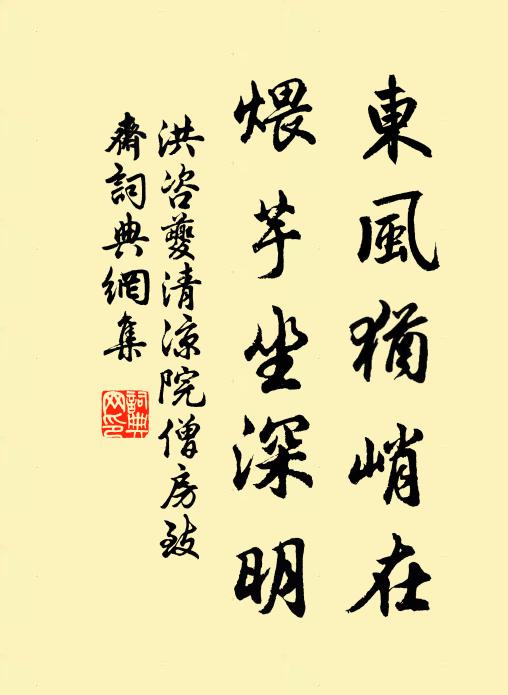 東風猶峭在
煨芋坐深明
洪咨夔清涼院僧房致
齋詞典網集
詞典
网印